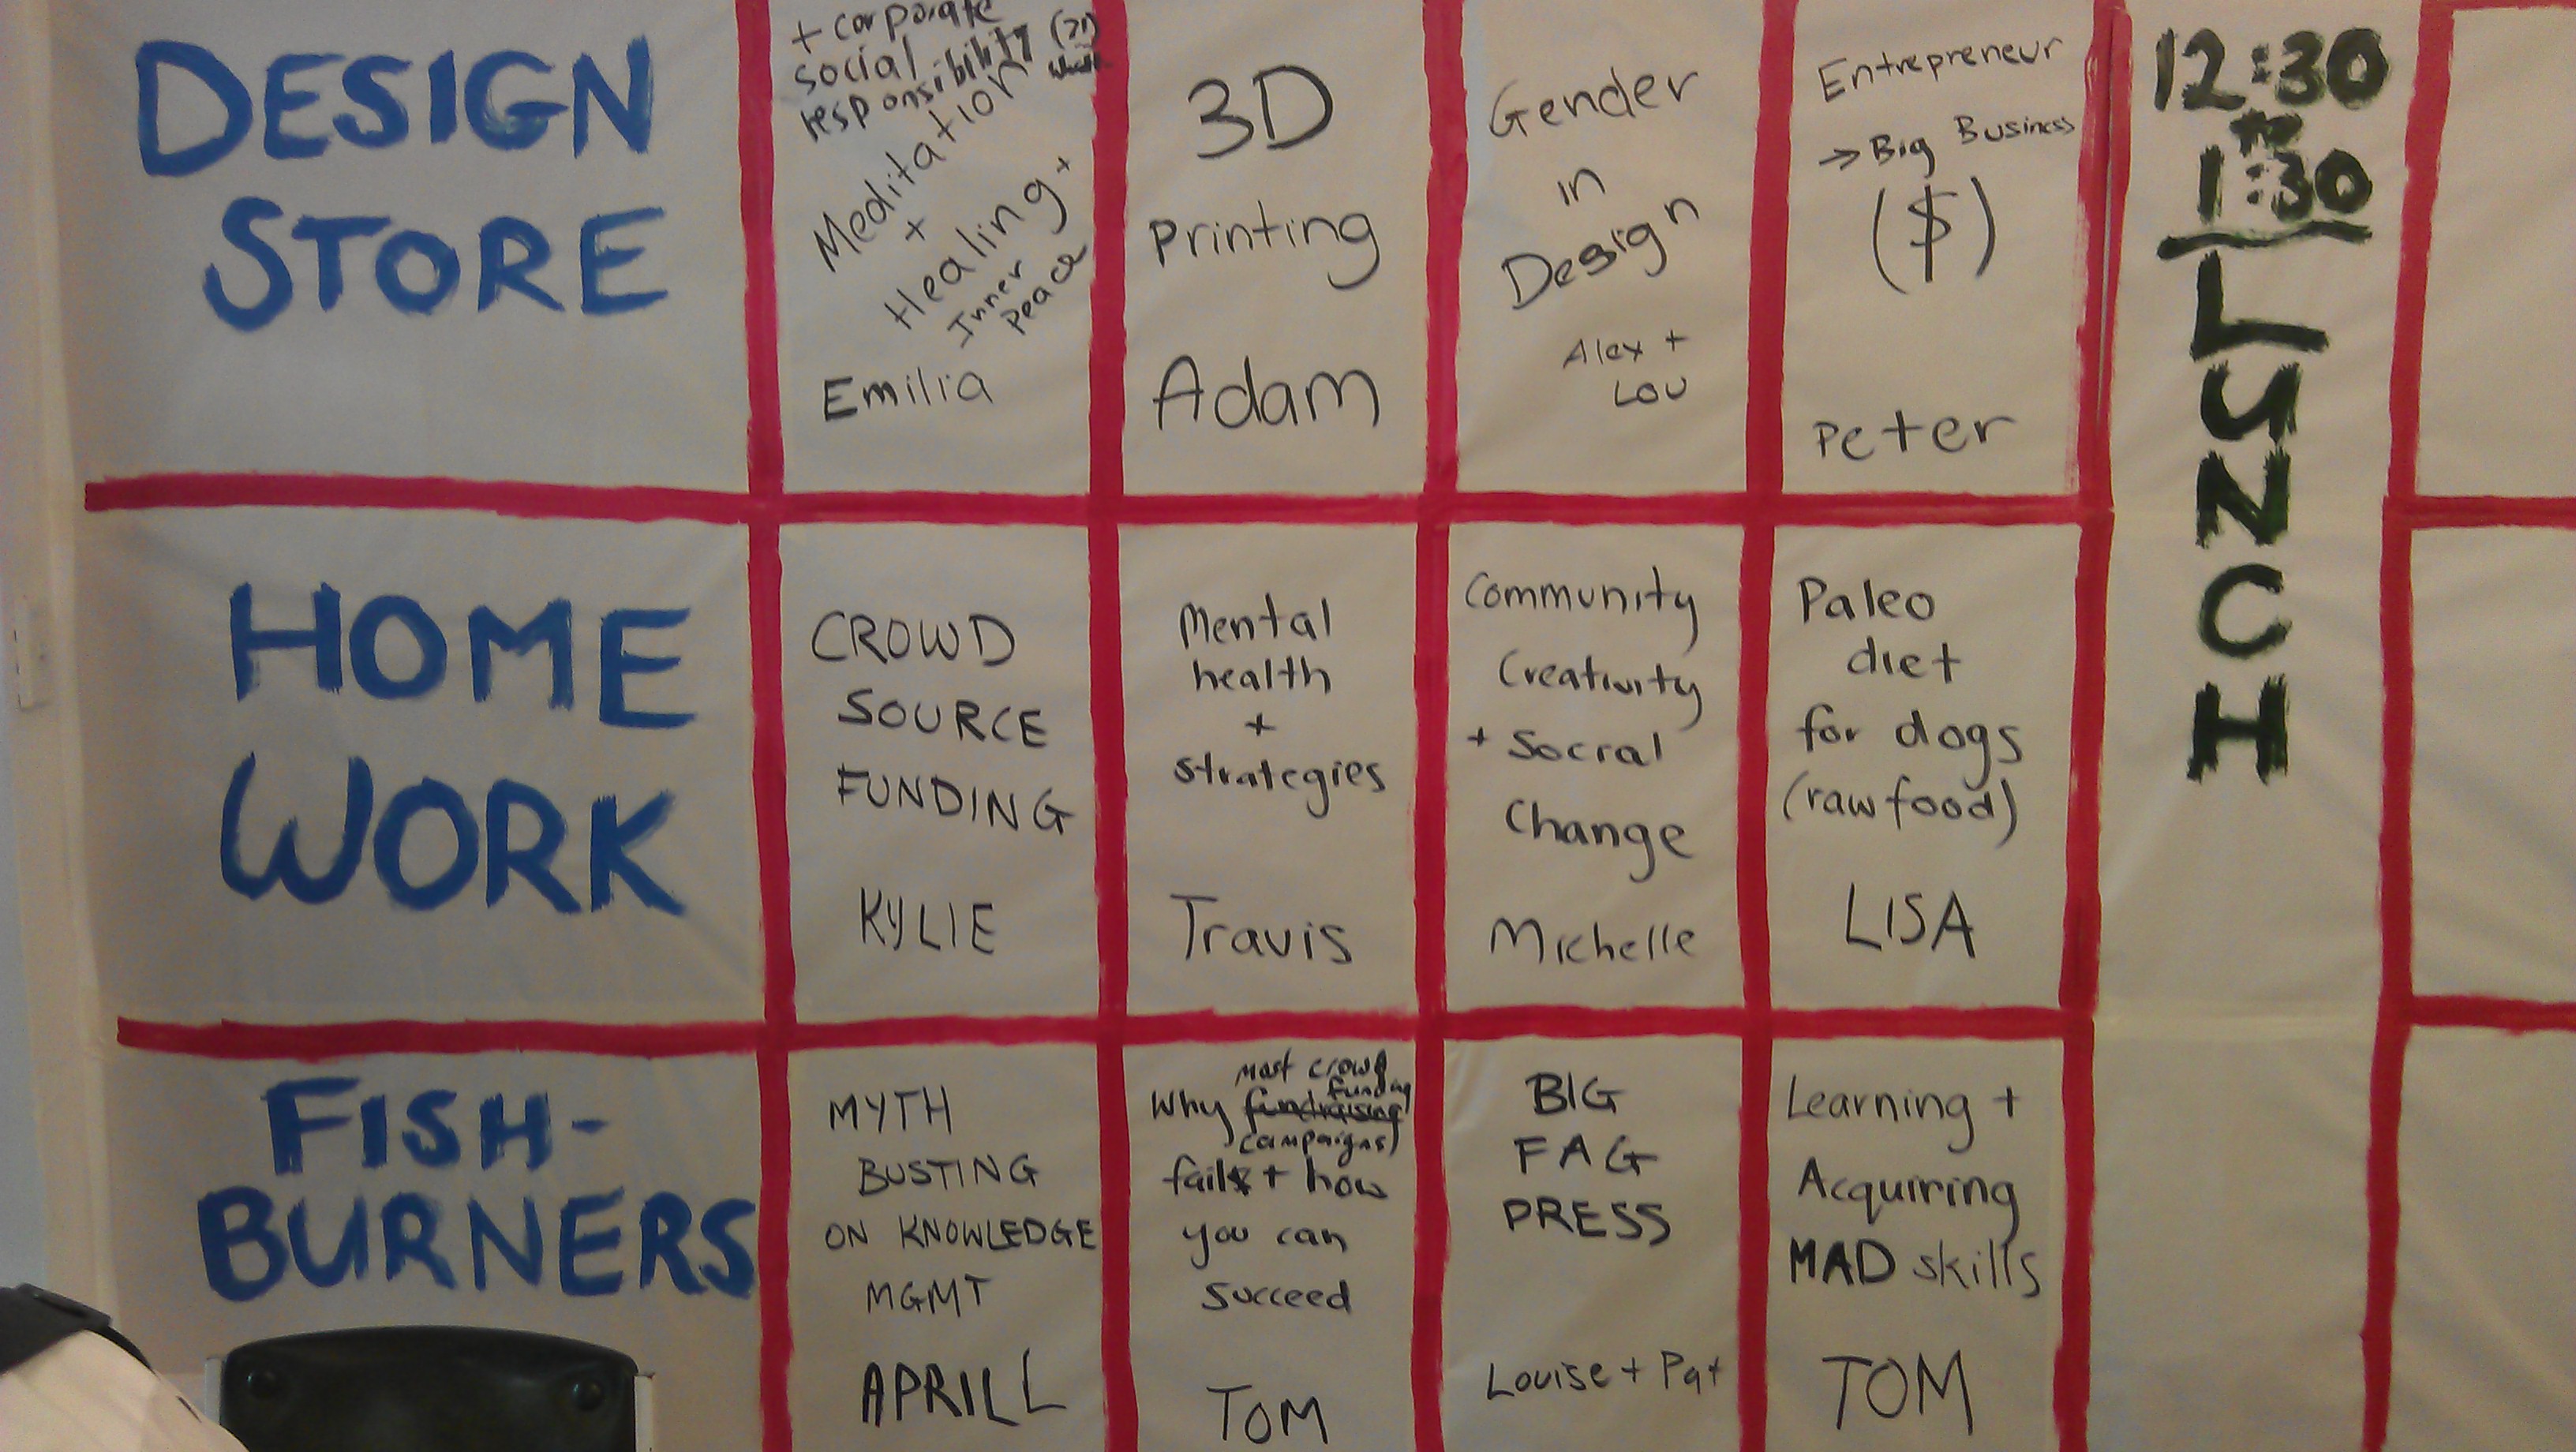 DESIGN
STORE
+ corporate
social
responsibility
Meditation
+
Healing +
Inner
Peace
Emilia
3D
Printing
Adam
Gender
in
Design
Alex +
Lou
Entrepreneur
→ Big Business
($)
Peter
12:30
to
1:30
LUNCH
HOME
WORK
CROWD
SOURCE
FUNDING
KYLIE
Mental
health
+
strategies
Travis
Community
Creativity
+ Social
Change
Michelle
Paleo
diet
for dogs
(raw food)
LISA
FISH-
BURNERS
MYTH
BUSTING
ON KNOWLEDGE
MGMT
APRILL
most crowd
funding
Why fundraising
campaigns)
fail + how
you can
succeed
TOM
BIG
FAG
PRESS
Louise + Pat
Learning +
Acquiring
MAD skills
TOM